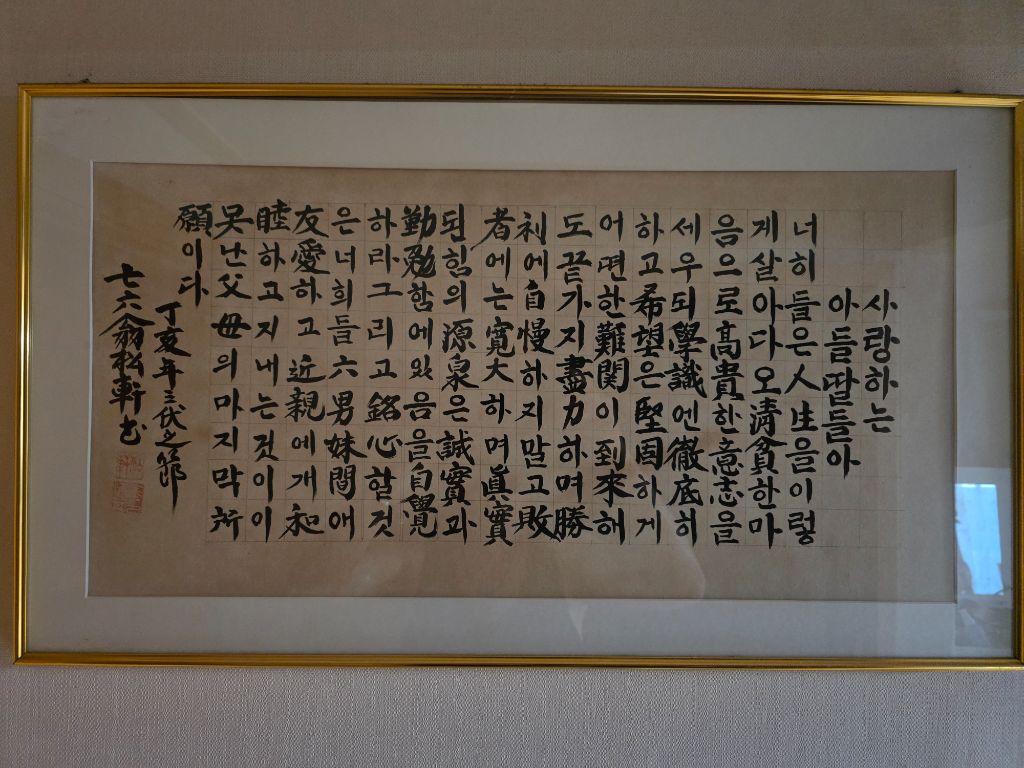 사랑하는
아들딸들아
너히들은人生을이렇
게살아다오淸貧한마
음으로高貴한意志을
세우되學識엔徹底히
하고希望은堅固하게
어떤한難関이到來해
도끝가지盡力하며勝
利에自慢하지말고敗
者에는寬大하며眞實
된힘의源泉은誠實과
勤勉함에있음을自覺
하라그리고銘心할것
은너희들六男妹間애
友愛하고近親에개和
睦하고지내는것이이
못난父母의마지막所
願이다
丁亥年三伏之節
七六翁松軒书